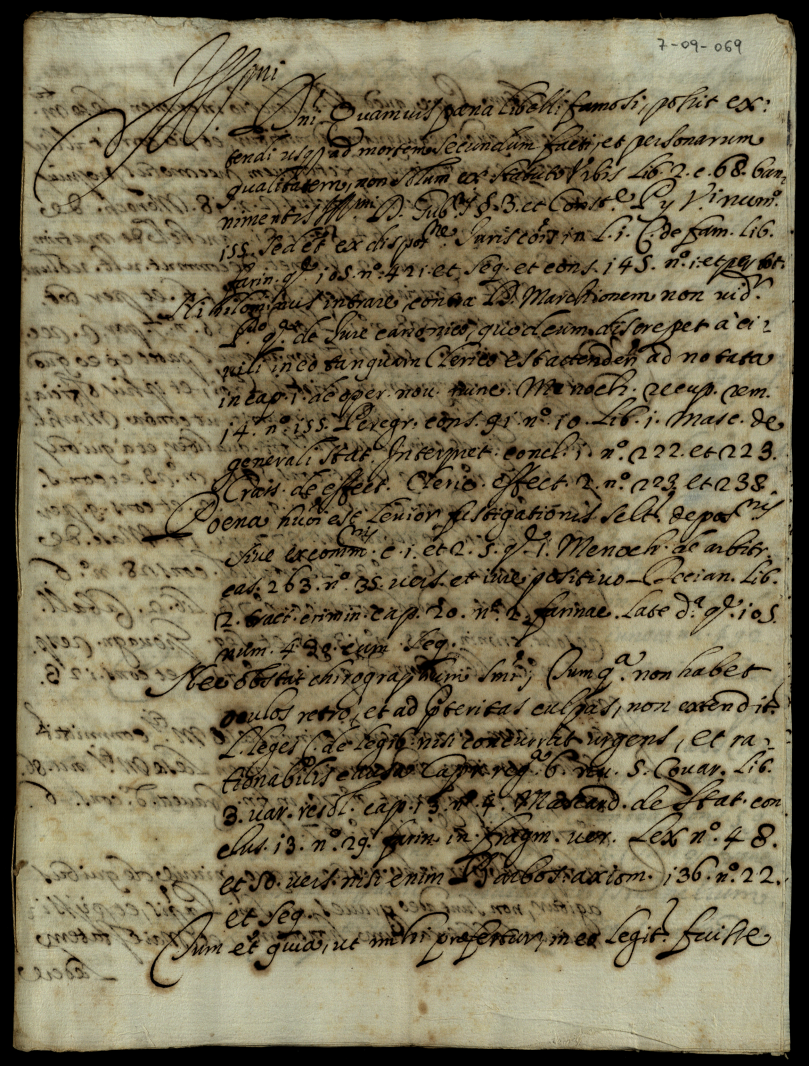 7-09-069
Illmi
Dni. Quamvis pœna libelli famosi, possit ex:
tendi usq; ad mortem secundum facti, et personarum
qualitatem, non solum ex Statuto Urbis Lib. 2. c. 68. ban=
nimentis Illmi D. Gub.ris §. 3. et Const.e Pij V. in num.
155. sed et ex dispos.ne Juriscon. in L. i. C. de fam. lib.
farin. q. 105. nº. 421. et seq. et cons. 145. nº. i. et per tot.
Nihilominus intrare contra D. Marchionem non vid.r
P.º q.a de Jure canonico, quod cum discrepet à ci=
vili in eo tanquam Clerico est attenden. ad notata
in cap. 1. de oper. nov. nunc. Menoch. recup. rem.
14. nº. 155. Peregr. cons. 91. nº. 10. Lib. 1. Masc. de
generali Stat. Interpret. concl. 1. nº. 222. et 223.
Crais. de effect. Cleric. effect. 2. nº. 223 et 238
Poena huius est levior fustigationis scilt. depos.nis
sive excomm.nis c. 1. et 2. 5. q. 1. Menoch. de arbitr.
cas. 263. nº. 35. vers. et iure positivo Decian. Lib.
2. tract. crimin. cap. 20. nº. 2. farinac. late d.a q. 105
num. 438. cum seq.
Nec obstat chirographum Smi; Tum q.a non habet
oculos retro, et ad pteritas culpas, non extendit.r
L. leges C. de legib. nisi concurrat urgens, et ra=
tionabilis causa Cap. req. 6. nu. 5. Covar. Lib.
3. var. resol. cap. 13. nº. 4. Mascard. de Stat. con
clus. 13. nº. 29. farin. in fragm. ver. Lex nº. 48.
et 50. vers. nisi enim Barbos. axiom. 136. nº. 22.
et seq.
Tum et quia, ut mihi profertur, in eo legit.r fuisse